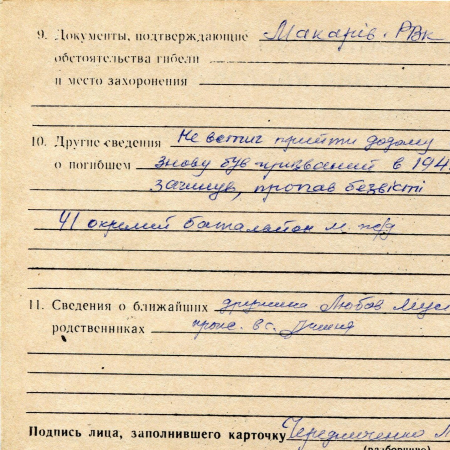 9. Документы, подтверждающие Макарів. РВК
обстоятельства гибели
и место захоронения
10. Другие сведения Не встиг прийти додому
о погибшем знову був призваний в 194
загинув, пропав безвісті
41 окремий батальйон м. ж/д
11. Сведения о ближайших дружина Любов
родственниках прож. в с.
Подпись лица, заполнившего карточку Чередниченко
(разборчиво)